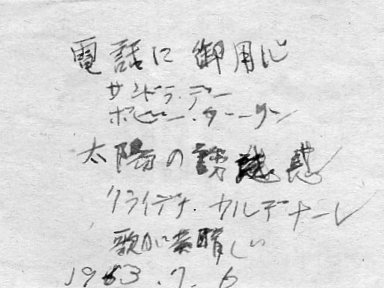 電話に御用心
サンドラ・デー
ボビー・ダーリン
太陽の誘惑
クライデナ・カルデナーレ
歌が素晴しい
1963.7.6